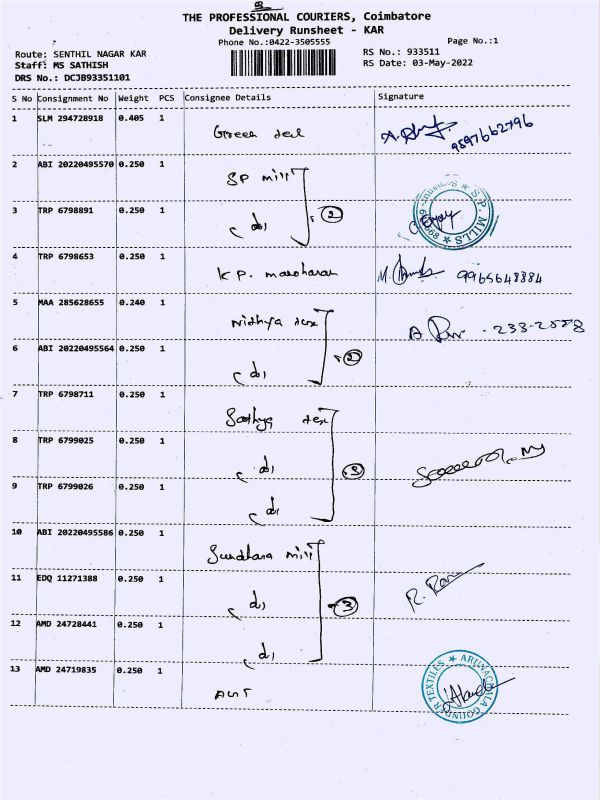 THE PROFESSIONAL COURIERS, Coimbatore
Delivery Runsheet - KAR
Phone No.:0422-3505555
Page No.:1
Route: SENTHIL NAGAR KAR
RS No.: 933511
Staff: MS SATHISH
RS Date: 03-May-2022
DRS No.: DCJB93351101
S No Consignment No Weight PCS Consignee Details Signature
1 SLM 294728918 0.405 1 Green
9597662796
2 ABI 20220495570 0.250 1 SP mill
3 TRP 6798891 0.250 1 (do) 2
S.P. MILLS
4 TRP 6798653 0.250 1 K P. manoharan
9965648884
5 MAA 285628655 0.240 1 Nithya tex
6 ABI 20220495564 0.250 1 (do) 2
7 TRP 6798711 0.250 1 Sathya tex
8 TRP 6799025 0.250 1 (do) 3
9 TRP 6799026 0.250 1 (do)
10 ABI 20220495586 0.250 1 Sundhara mill
11 EDQ 11271388 0.250 1 (do) 3
R. Ram
12 AMD 24728441 0.250 1 (do)
13 AMD 24719835 0.250 1
GOUNDER TEXTILES